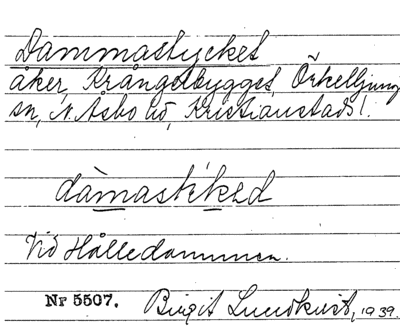 Dammastycket
åker, Krångelbygget, Örkelljunga
sn, N. Åsbo hd, Kristianstads l.
dàmastikəd
Vid Hålledammen.
Nr 5507. Birgit Lundkvist, 1939.